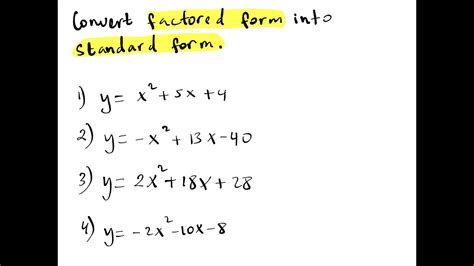 Convert factored form into
standard form.
1) y = x² + 5x + 4
2) y = -x² + 13x - 40
3) y = 2x² + 18x + 28
4) y = -2x² - 10x - 8